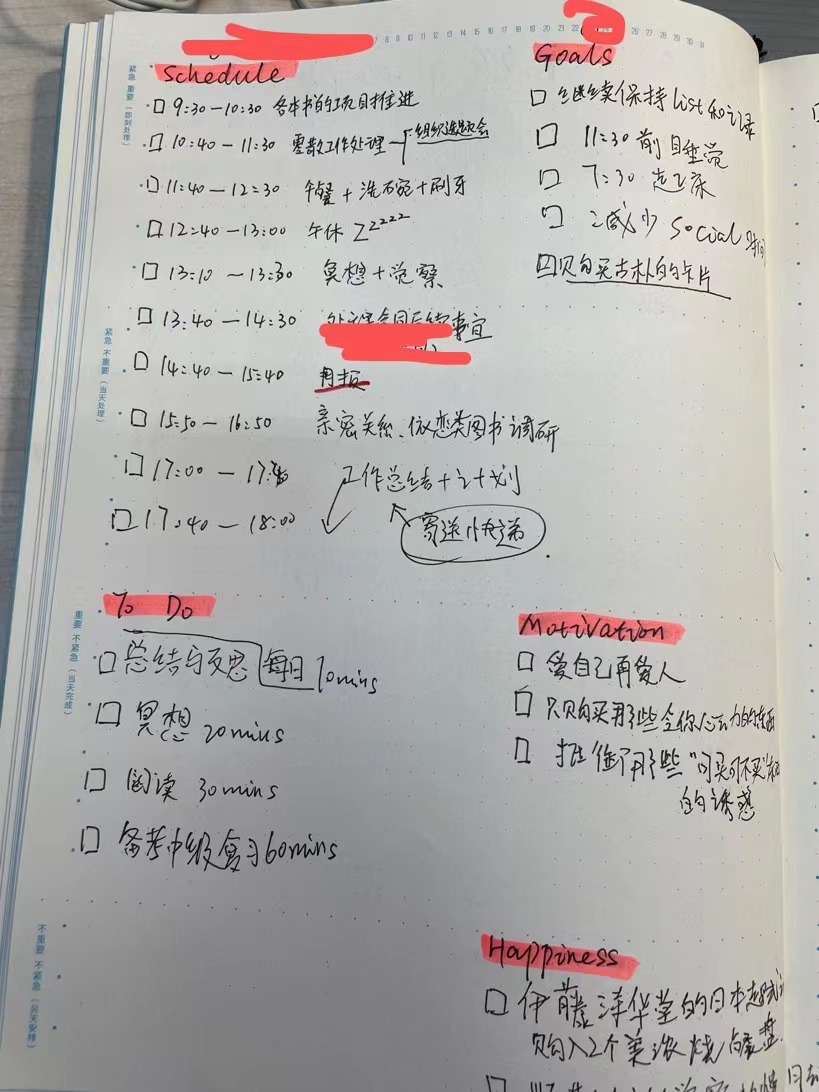 8 9 10 11 12 13 14 15 16 17 18 19 20 21 22 26 27 28 29 30 31
紧急 重要（即刻处理）
Schedule
□ 9:30—10:30 各本书的项目推进
□ 10:40—11:30 零散工作处理 组织选题会
□ 11:40—12:30 午餐+洗碗+刷牙
□ 12:40—13:00 午休 Zzzzz
□ 13:10—13:30 冥想+觉察
紧急 不重要（当天处理）
□ 13:40—14:30 事宜
□ 14:40—15:40
□ 15:50—16:50 亲密关系、依恋类图书调研
□ 17:00—17: 工作总结+计划
□ 17:40—18:00 寄送快递
Goals
□ 继续保持list和记录
□ 11:30前睡觉
□ 7:30起床
□ 减少social时间
购买古朴的卡片
重要 不紧急（当天完成）
To Do
□ 总结与反思 每日10mins
□ 冥想 20mins
□ 阅读 30mins
□ 备考中级复习60mins
Motivation
□ 爱自己再爱人
□ 只购买那些令你心动的东西
□ 拒绝那些“可买可不买”
的诱惑
不重要 不紧急（另天安排）
Happiness
□ 伊藤洋华堂的日本
购入2个美浓烧